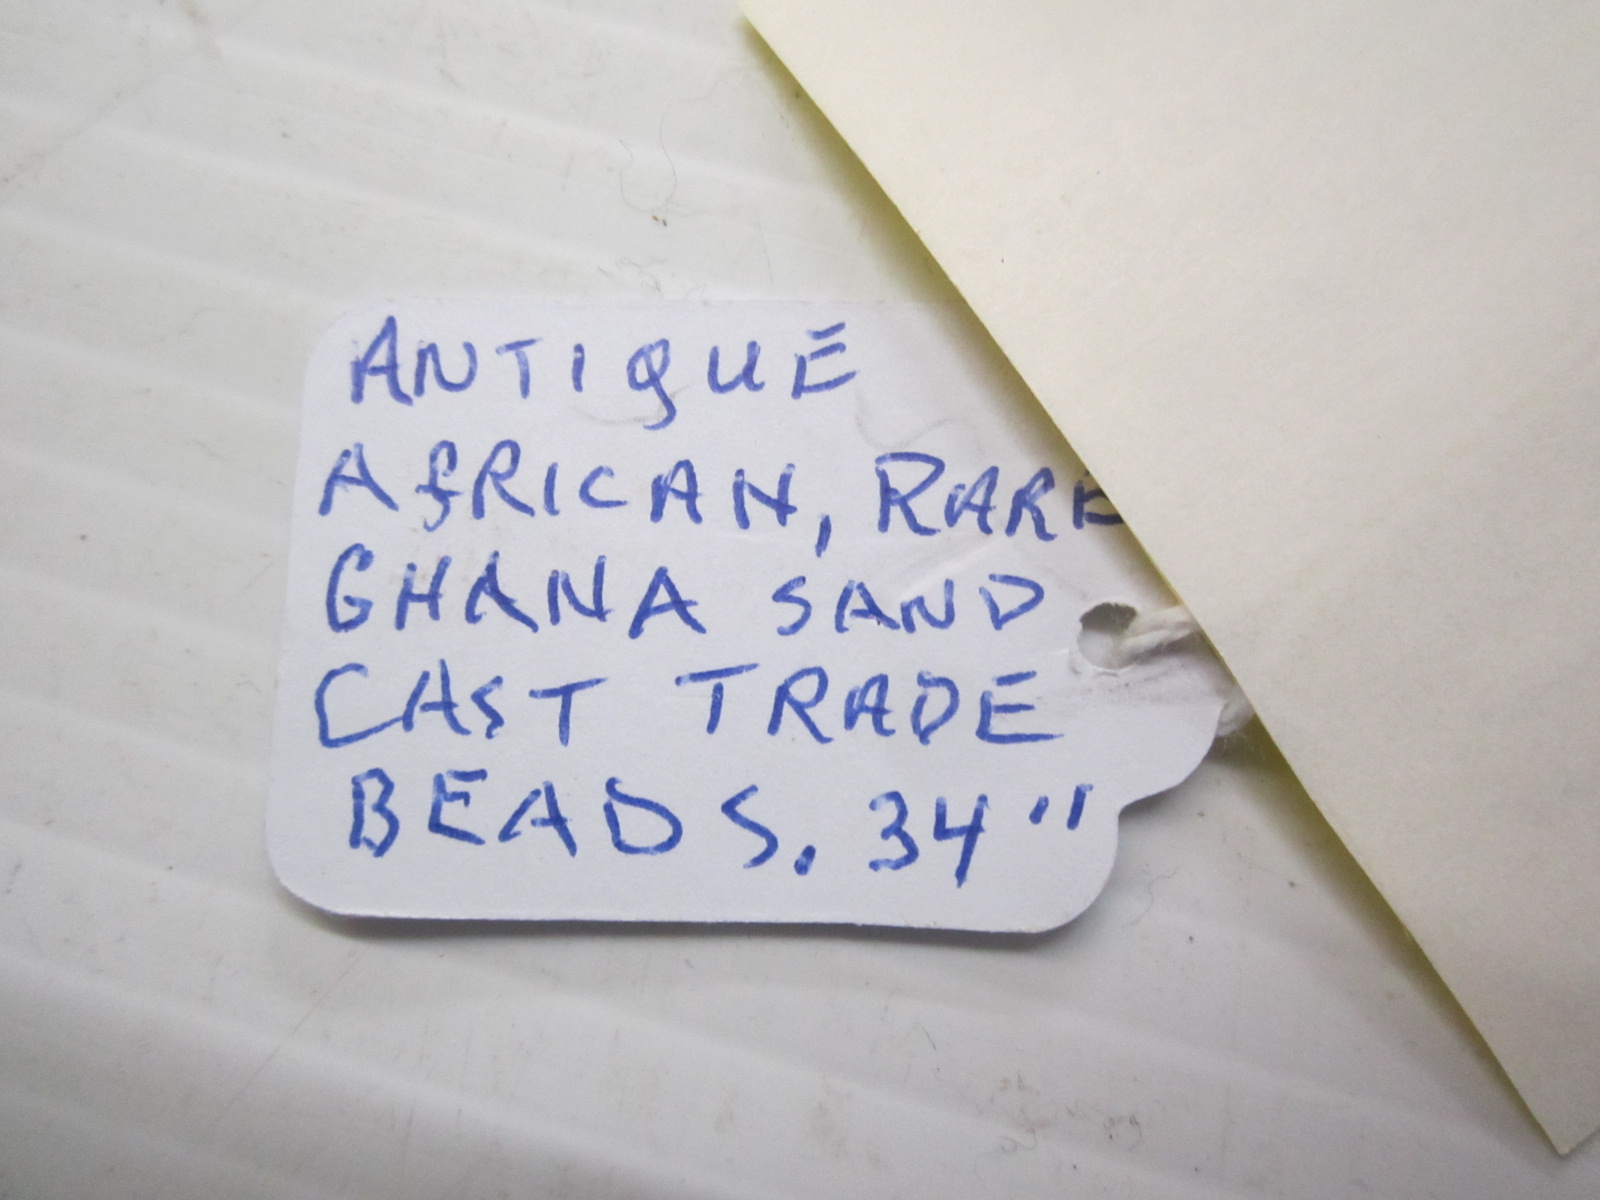 ANTIQUE
AFRICAN, RARE
GHANA SAND
CAST TRADE
BEADS. 34"